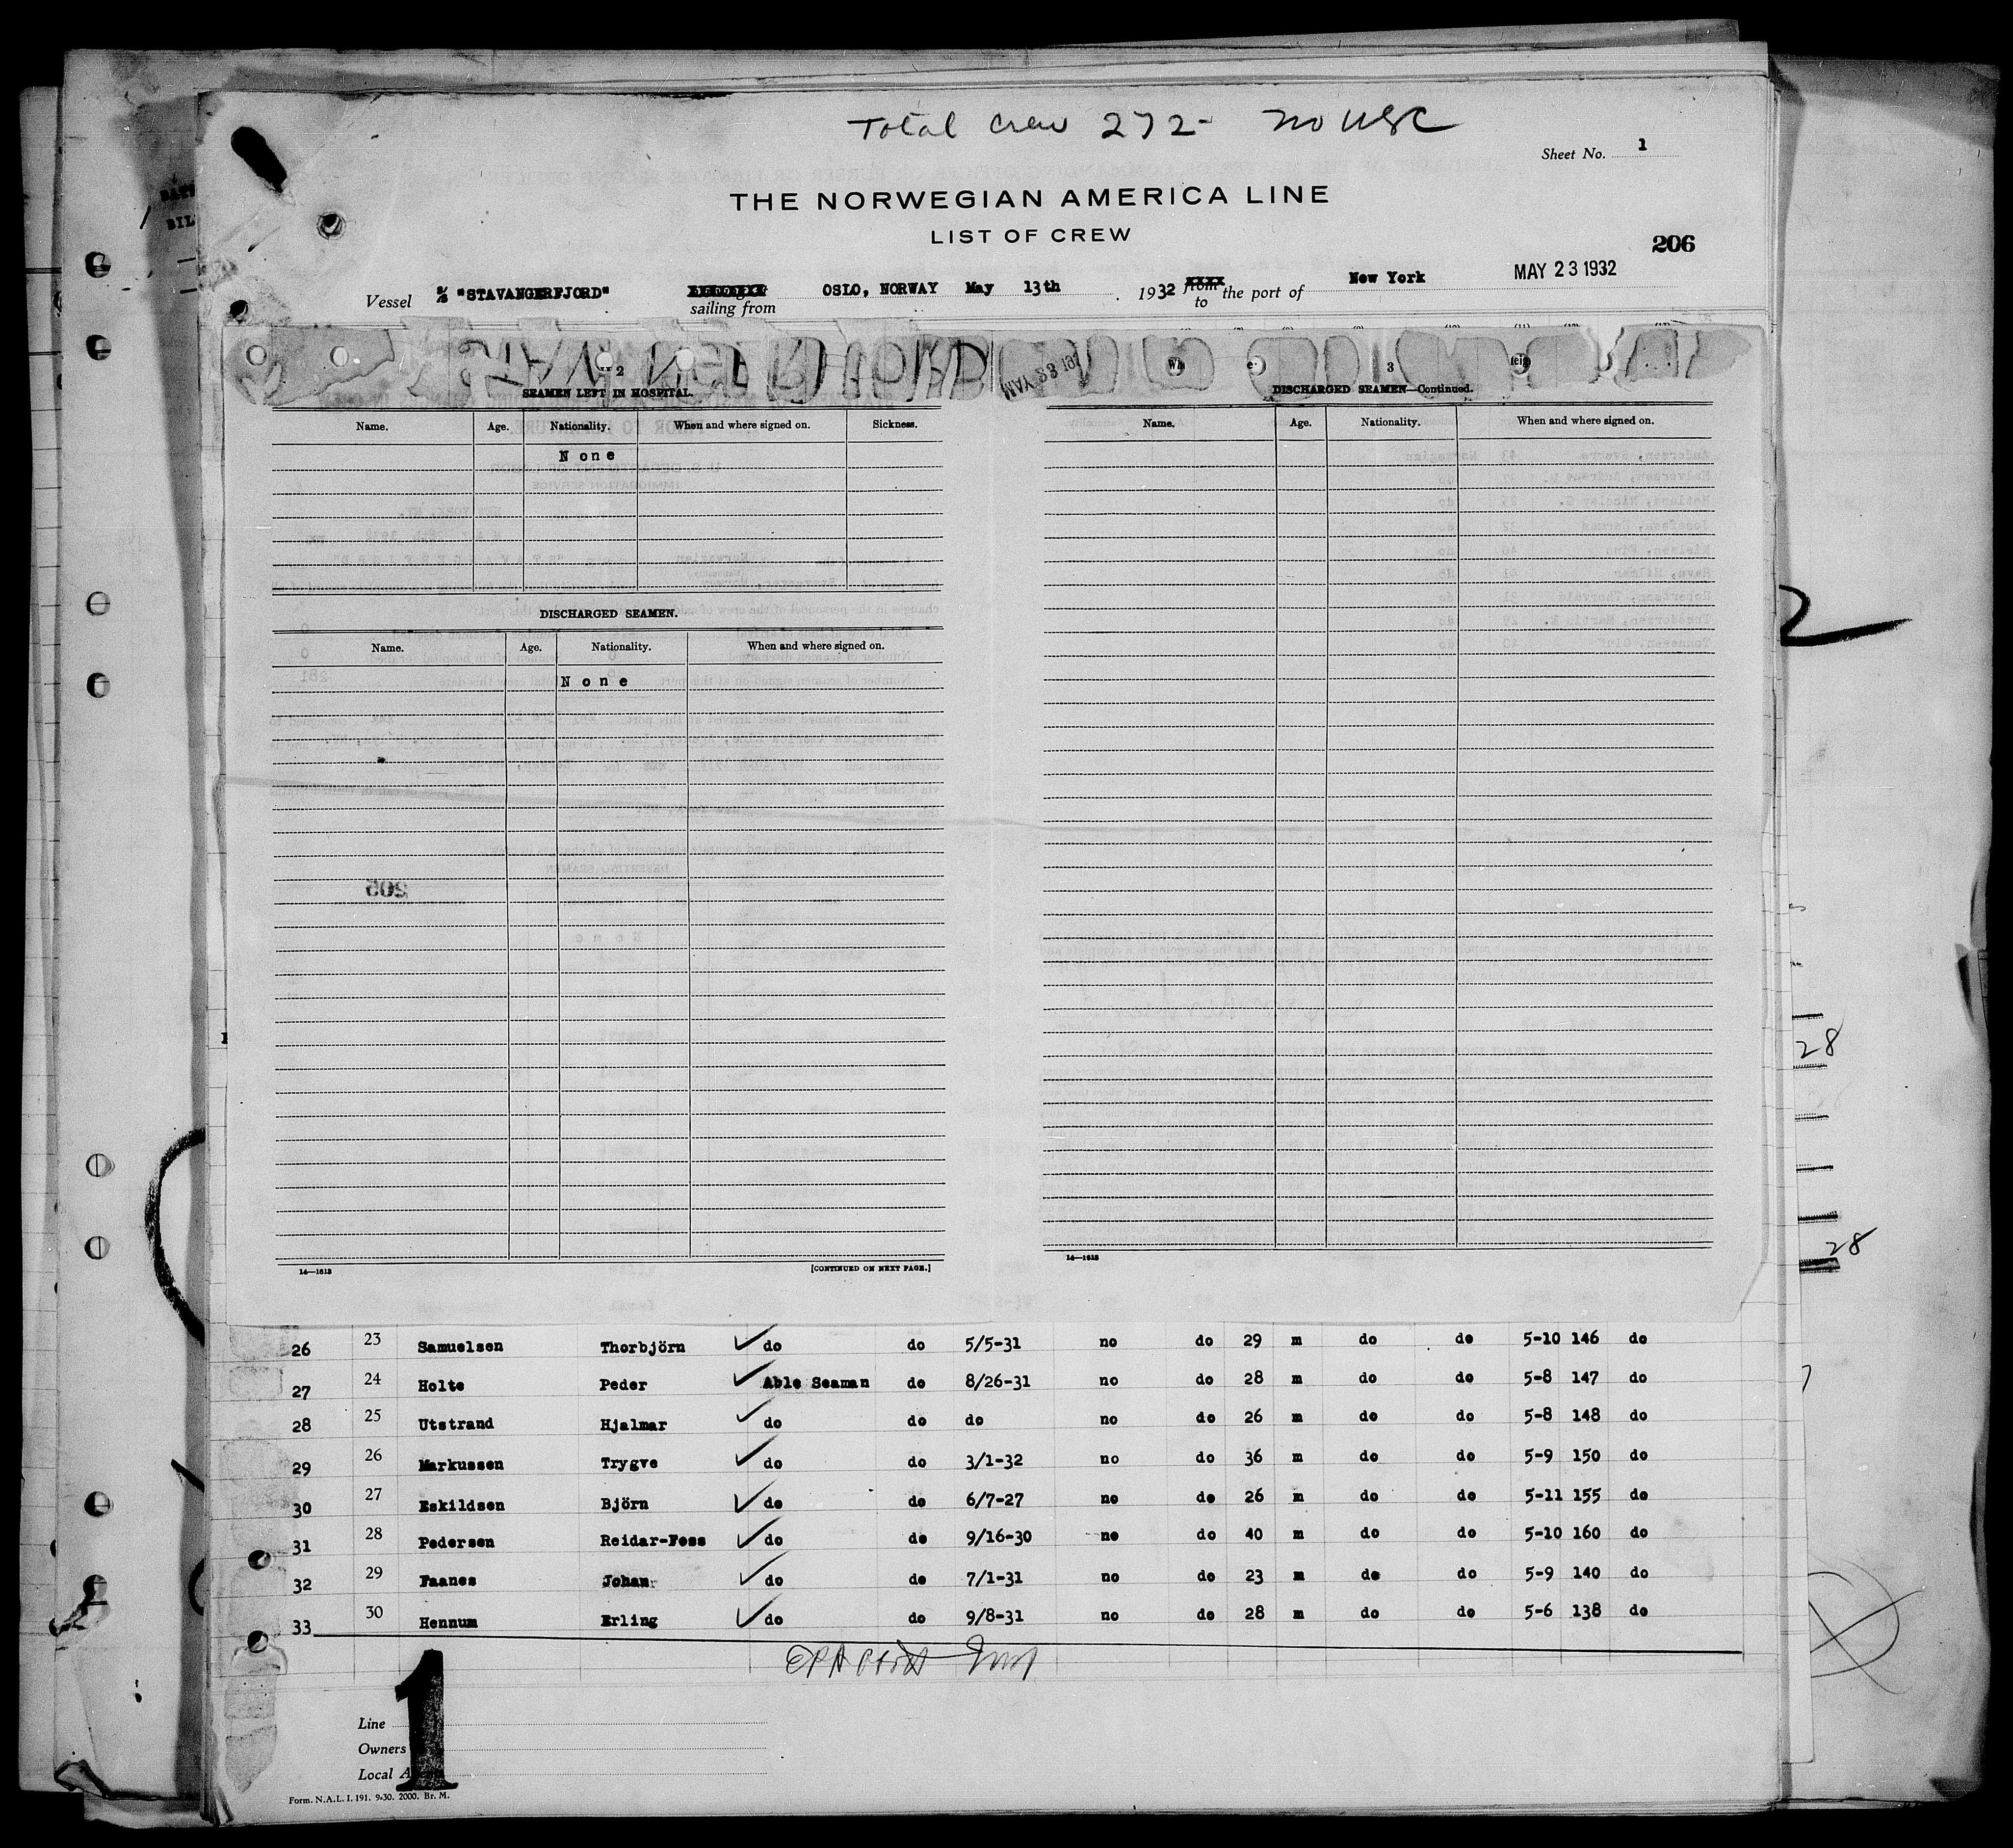 Total Crew 272- no USC
Sheet No. 1
THE NORWEGIAN AMERICA LINE
LIST OF CREW
206
MAY 23 1932
Vessel S/S "STAVANGERFJORD" sailing from OSLO, NORWAY May 13th . 1932 from to the port of New York
STAVANGERFJORD MAY 23 193
2
3
SEAMEN LEFT IN HOSPITAL.
Name. Age. Nationality. When and where signed on. Sickness.
None
DISCHARGED SEAMEN.
Name. Age. Nationality. When and where signed on.
None
14—1613 [CONTINUED ON NEXT PAGE.]
DISCHARGED SEAMEN—Continued.
Name. Age. Nationality. When and where signed on.
14—1613
28
28
26 23 Samuelsen Thorbjörn do do 5/5-31 no do 29 m do do 5-10 146 do
27 24 Holte Peder Able Seaman do 8/26-31 no do 28 m do do 5-8 147 do
28 25 Utstrand Hjalmar do do do no do 26 m do do 5-8 148 do
29 26 Markussen Trygve do do 3/1-32 no do 36 m do do 5-9 150 do
30 27 Eskildsen Björn do do 6/7-27 no do 26 m do do 5-11 155 do
31 28 Pedersen Reidar-Foss do do 9/16-30 no do 40 m do do 5-10 160 do
32 29 Faanes Johan do do 7/1-31 no do 23 m do do 5-9 140 do
33 30 Hennum Erling do do 9/8-31 no do 28 m do do 5-6 138 do
1
Line
Owners
Local A
Form. N.A.L. I. 191. 9-30. 2000. Br. M.